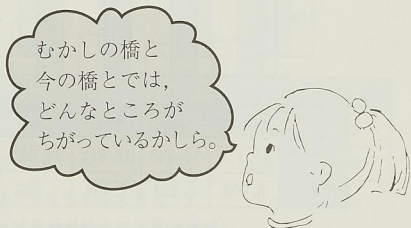 むかしの橋と
今の橋とでは,
どんなところが
ちがっているかしら。